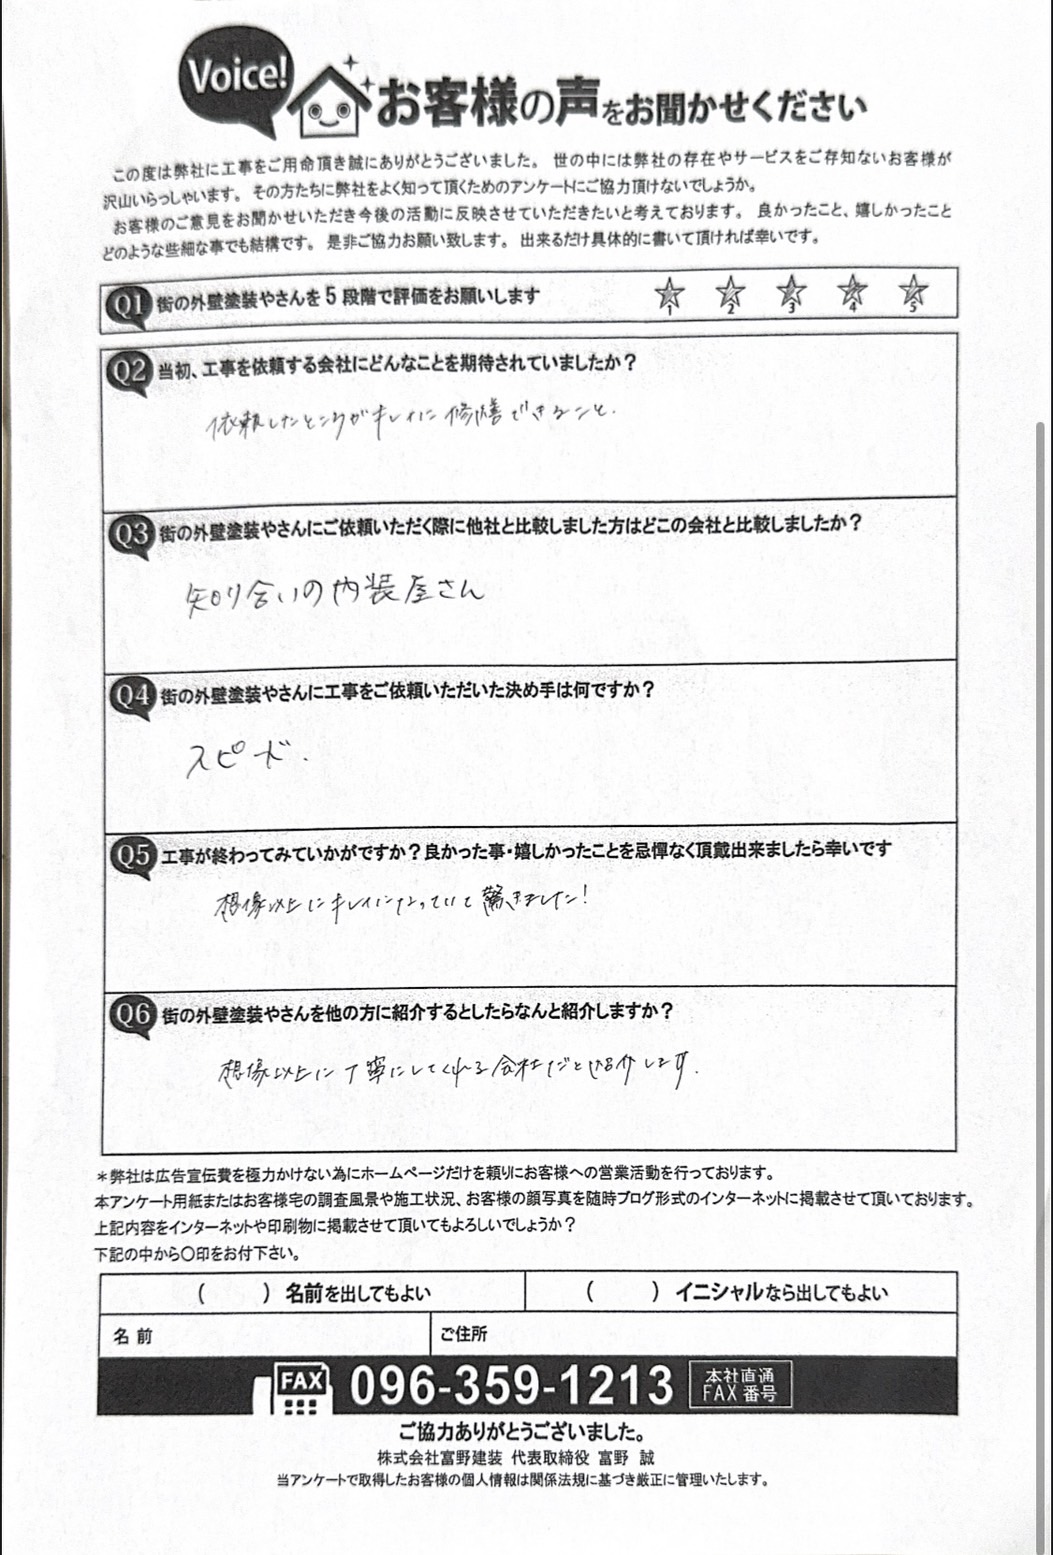 Voice!
お客様の声をお聞かせください
この度は弊社に工事をご用命頂き誠にありがとうございました。 世の中には弊社の存在やサービスをご存知ないお客様が
沢山いらっしゃいます。 その方たちに弊社をよく知って頂くためのアンケートにご協力頂けないでしょうか。
お客様のご意見をお聞かせいただき今後の活動に反映させていただきたいと考えております。 良かったこと、嬉しかったこと
どのような些細な事でも結構です。 是非ご協力お願い致します。 出来るだけ具体的に書いて頂ければ幸いです。
Q1 街の外壁塗装やさんを5段階で評価をお願いします
1 2 3 4 5
Q2 当初、工事を依頼する会社にどんなことを期待されていましたか？
依頼したところがキレイに修繕できること.
Q3 街の外壁塗装やさんにご依頼いただく際に他社と比較しました方はどこの会社と比較しましたか？
知り合いの内装屋さん
Q4 街の外壁塗装やさんに工事をご依頼いただいた決め手は何ですか？
スピード.
Q5 工事が終わってみていかがですか？良かった事・嬉しかったことを忌憚なく頂戴出来ましたら幸いです
想像以上にキレイになっていて驚きました!
Q6 街の外壁塗装やさんを他の方に紹介するとしたらなんと紹介しますか？
想像以上に丁寧にしてくれる会社だと紹介します.
＊弊社は広告宣伝費を極力かけない為にホームページだけを頼りにお客様への営業活動を行っております。
本アンケート用紙またはお客様宅の調査風景や施工状況、お客様の顔写真を随時ブログ形式のインターネットに掲載させて頂いております。
上記内容をインターネットや印刷物に掲載させて頂いてもよろしいでしょうか？
下記の中から〇印をお付下さい。
（　　）名前を出してもよい （　　）イニシャルなら出してもよい
名前 ご住所
FAX 096-359-1213 本社直通
FAX番号
ご協力ありがとうございました。
株式会社富野建装 代表取締役 富野 誠
当アンケートで取得したお客様の個人情報は関係法規に基づき厳正に管理いたします。